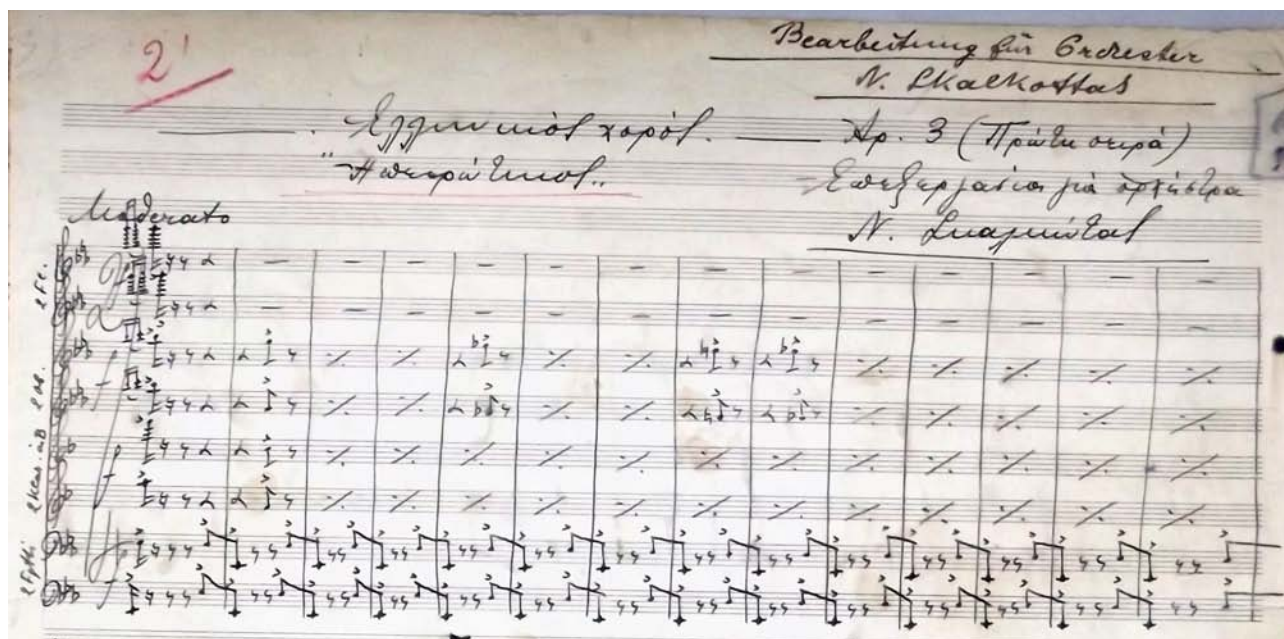 2!
Bearbeitung für Orchester
N. Skalkottas
Ελληνικός χορός. — Αρ. 3 (Πρώτη σειρά)
"Ηπειρώτικος"
Επεξεργασία για ορχήστρα
Ν. Σκαλκώτας
Moderato
2 Fl.
2 Ob.
2 Klar. in B
2 Fgtti